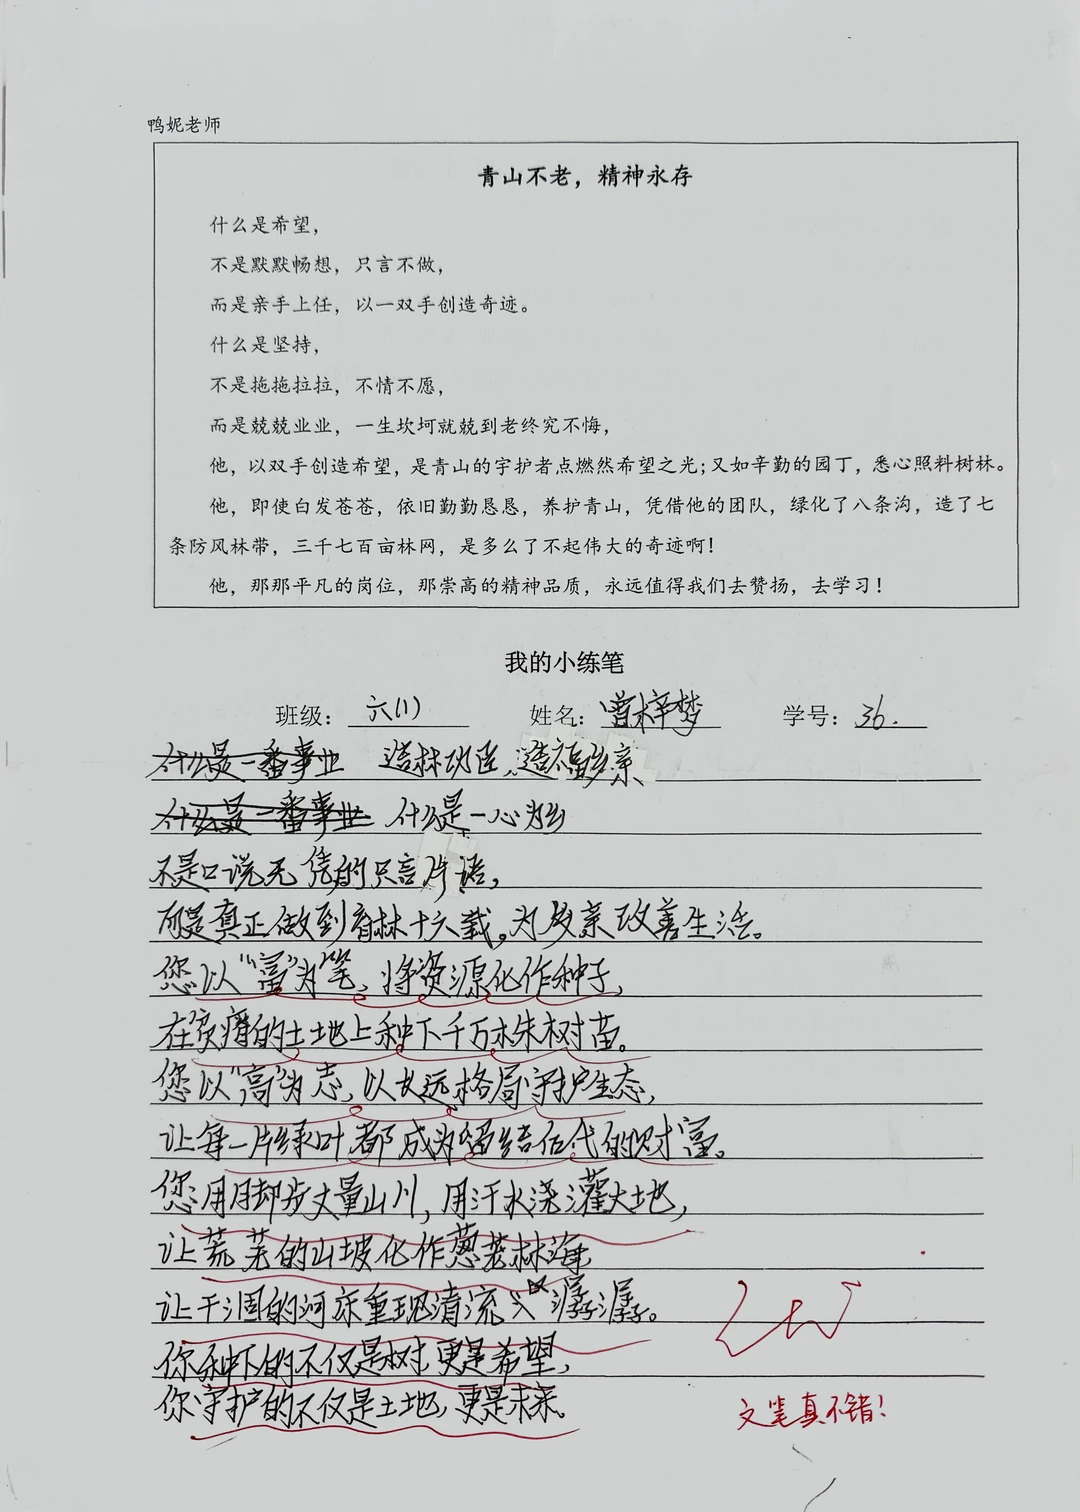 鸭妮老师
青山不老，精神永存
什么是希望，
不是默默畅想，只言不做，
而是亲手上任，以一双手创造奇迹。
什么是坚持，
不是拖拖拉拉，不情不愿，
而是兢兢业业，一生坎坷就兢到老终究不悔，
他，以双手创造希望，是青山的宇护者点燃然希望之光；又如辛勤的园丁，悉心照料树林。
他，即使白发苍苍，依旧勤勤恳恳，养护青山，凭借他的团队，绿化了八条沟，造了七
条防风林带，三千七百亩林网，是多么了不起伟大的奇迹啊！
他，那那平凡的岗位，那崇高的精神品质，永远值得我们去赞扬，去学习！
我的小练笔
班级：六(1) 姓名：曾梓梦 学号：36.
什么是一番事业 造林功臣，造福乡亲
什么是一番事业 什么是一心为乡
不是口说无凭的只言片语，
而是真正做到育林十六载，为乡亲改善生活。
您以“富”为笔，将资源化作种子，
在贫瘠的土地上种下千万木朱树苗。
您以“高”为志，以长远格局守护生态，
让每一片绿叶都成为留给后代的财富。
您用脚步丈量山川，用汗水浇灌大地，
让荒芜的山坡化作葱茏林海
让干涸的河床重现清流潺潺。
你种下的不仅是树，更是希望，
你守护的不仅是土地，更是未来。
文笔真不错！